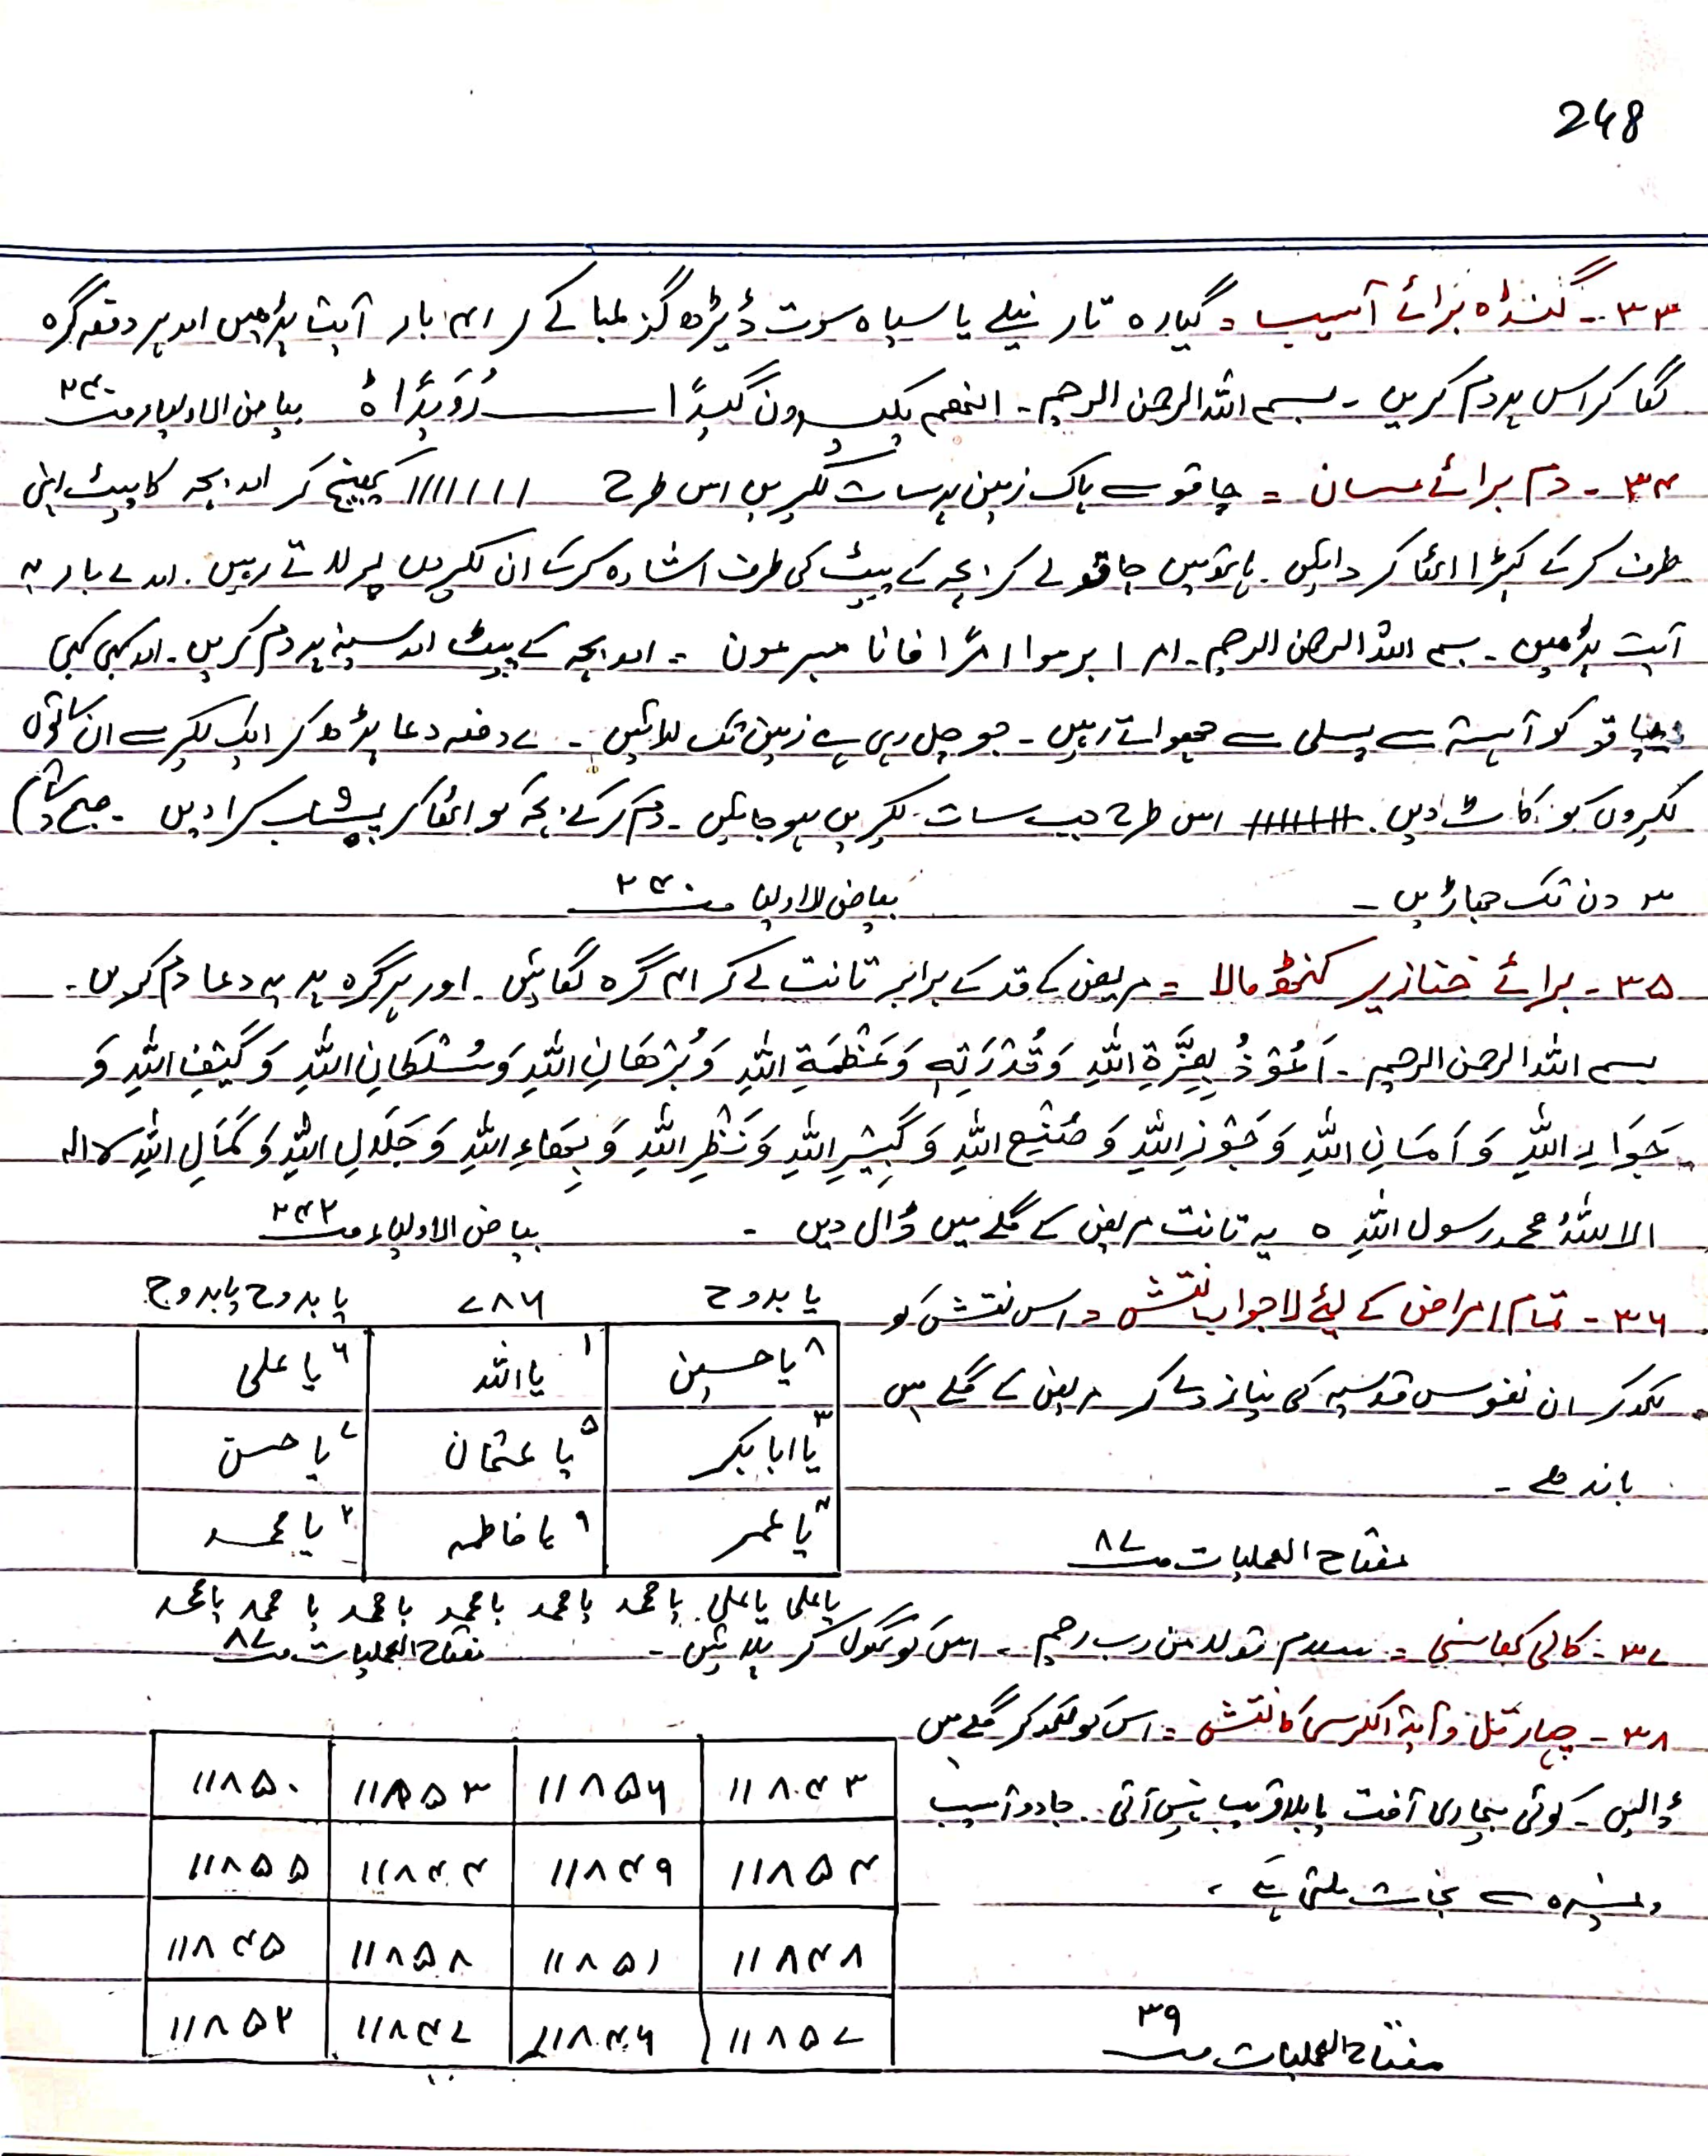 248
۳۳ - گنڈہ برائے آسیب = گیارہ تار نیلے یا سیاہ سوت ڈیڑھ گز لمبا لے کر ۴۱ بار آیت پڑھیں اور ہر دفعہ گرہ
لگا کر اس پر دم کریں - بسم اللہ الرحمن الرحیم - انھم یکیدون کیدًا ـــــــ رُوَیْدًا ہ بیاض الاولیاء صـ ۲۴۰
۳۴ - دم برائے مسان = چاقو سے پاک زمین پر سات لکیریں اس طرح / / / / / / / کھینچ کر اور بچہ کا پیٹ اپنی
طرف کر کے کپڑا اٹھا کر دایگی. ہاتھ میں چاقو لے کر بچہ کے پیٹ کی طرف اشارہ کر کے ان لکیروں پر لاتے رہیں. اور ۷ بار یہ
آیت پڑھیں - بسم اللہ الرحمن الرحیم - ام ابرموا امرًا فانا مبرمون - اور بچہ کے پیٹ اور سینہ پر دم کریں - اور کبھی کبھی
چاقو کو آہستہ سے پسلی سے چھواتے رہیں - جو چل رہی ہے زمین تک لائیں - ۷ دفعہ دعا پڑھ کر ایک لکیر سے ان ساتوں
لکیروں کو کاٹ دیں. اس طرح جب سات لکیریں ہو جائیں - دم کر کے بچہ کو اٹھا کر پیشاب کرا دیں - صبح شام
۳ دن تک جھاڑیں - بیاض الاولیا صـ ۲۴۰
۳۵ - برائے خنازیر کنٹھ مالا = مریض کے قد کے برابر تانت لے کر ۴۱ گرہ لگائیں اور ہر گرہ پر یہ دعا دم کریں -
بسم اللہ الرحمن الرحیم - اَعُوْذُ بِعِزَّةِ اللهِ وَقُدْرَتِهٖ وَعَظْمَةِ اللهِ وَبُرْهَانِ اللهِ وَسُلْطَانِ اللهِ وَكَنَفِ اللهِ وَ
جَوَارِ اللهِ وَ اَمَانِ اللهِ وَحَوْزِ اللهِ وَ صُنْعِ اللهِ وَ كِبْرِ اللهِ وَ نَظْرِ اللهِ وَ بِهَاءِ اللهِ وَ جَلَالِ اللهِ وَ كَمَالِ اللهِ لا الہ
الا اللهُ محمد رسول اللهِ ہ یہ تانت مریض کے گلے میں ڈال دیں - بیاض الاولیاء صـ ۲۴۲
۳۶ - تمام امراض کے لیئے لاجواب نقش = اس نقش کو
لکھ کر ان نفوس قدسیہ کی نیاز دے کر مریض کے گلے میں
باندھے -
مفتاح العملیات صـ ۸۷
یا بدوح ۷۸۶ یا بدوح یا بدوح
۸ یا حسین ۱ یا اللہ ۶ یا علی
۳ یا ابا بکر ۵ یا عثمان ۷ یا حسن
۴ یا عمر ۹ یا فاطمہ ۲ یا محمد
یا علی یا علی یا محمد یا محمد یا محمد یا محمد یا محمد یا محمد
۳۷ - کالی کھانسی = سلام قولا من رب رحیم - اس کو گھول کر پلائیں - مفتاح العملیات صـ ۸۷
۳۸ - چہار قل و آیۃ الکرسی کا نقش = اس کو لکھ کر گلے میں
ڈالیں - کوئی بیماری آفت یا بلا قریب نہیں آتی. جادو آسیب
وغیرہ سے نجات ملتی ہے -
مفتاح العملیات صـ ۳۹
۱۱۸۴۳ ۱۱۸۵۶ ۱۱۸۵۳ ۱۱۸۵۰
۱۱۸۵۴ ۱۱۸۴۹ ۱۱۸۴۴ ۱۱۸۵۵
۱۱۸۴۸ ۱۱۸۵۱ ۱۱۸۵۸ ۱۱۸۴۵
۱۱۸۵۷ ۱۱۸۴۶ ۱۱۸۴۷ ۱۱۸۵۲